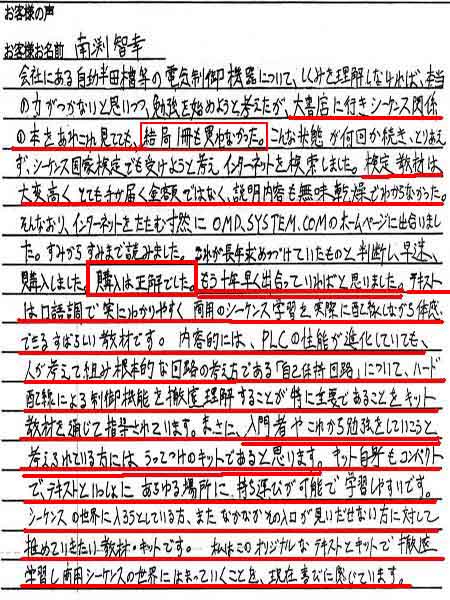 お客様の声
お客様お名前 南渕智幸
会社にある自動半田槽等の電気制御機器について、しくみを理解しなければ、本当
の力がつかないと思いつつ、勉強を始めようと考えたが、大書店に行きシーケンス関係
の本をあれこれ見ても、結局1冊も買わなかった。こんな状態が何回か続き、とりあえ
ず、シーケンス国家検定でも受けようと考えインターネットを検索しました。検定教材は
大変高くとても手が届く金額ではなく、説明内容も無味乾燥でわからなかった。
そんなおり、インターネットをたたむ寸前にOMD.SYSTEM.COMのホームページに出合いまし
た。すみからすみまで読みました。これが長年求めつづけていたものと判断し、早速、
購入しました。購入は正解でした。もう十年早く出合っていればと思いました。テキスト
は口語調で実にわかりやすく商用のシーケンス学習を実際に配線しながら体感
できるすばらしい教材です。内容的には、PLCの性能が進化していても、
人が考えて組み根本的な回路の考え方である「自己保持回路」について、ハード
配線による制御機能を徹底理解することが特に重要であることをキット
教材を通じて指導されています。まさに、入門者やこれから勉強をしていこうと
考えられている方にはうってつけのキットであると思います。キット自身もコンパクト
でテキストといっしょにあらゆる場所に持ち運びが可能で学習しやすいです。
シーケンスの世界に入ろうとしている方、またなかなかその入口が見いだせない方に対して
推めていきたい教材・キットです。私はこのオリジナルなテキストとキットで徹底
学習し商用シーケンスの世界にはまっていくことを、現在喜びに感じています。